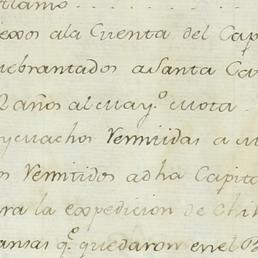 exos ala Cuenta del Cap
uebrantados a Santa Ca
2 años al mayº cuota
y muchos Vemitidas a
os Vemitidos adha Capita
ra la expedicion de Chil
ansas qº quedaron en el B